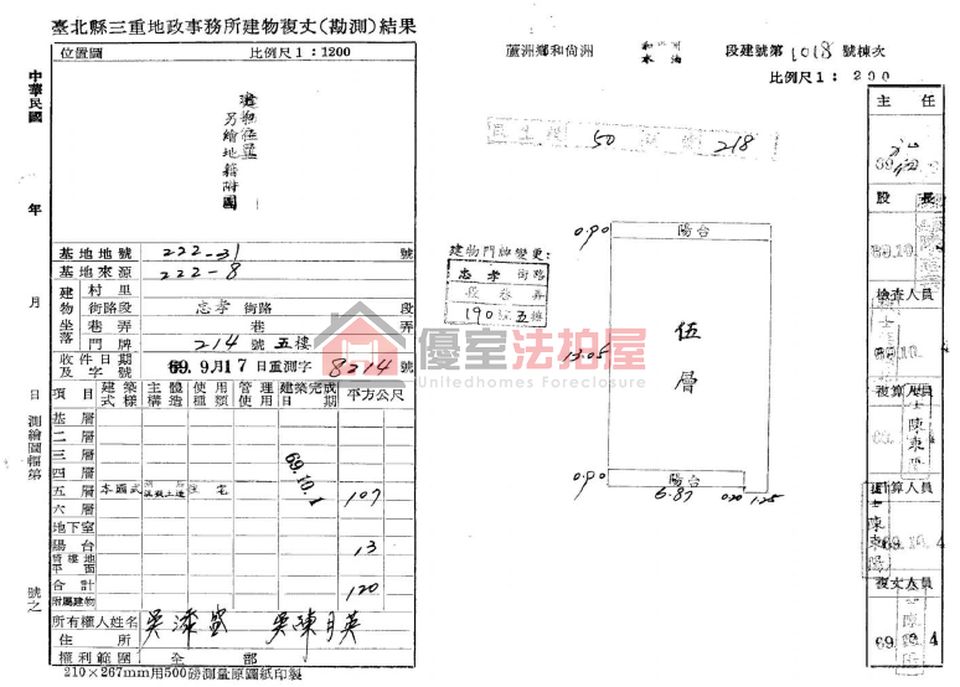 臺北縣三重地政事務所建物複丈(勘測)結果
位置圖 比例尺1:1200
建物位置
另繪地籍附圖
中華民國 年 月 日 測繪圖幅第 號之
基地地號 222-31 號
基地來源 222-8
建物坐落
村里
街路段 忠孝 街路 段
巷弄 巷 弄
門牌 214號 五樓
收件日期及字號 69.9月17日重測字 8214 號
項目 建築式樣 主體構造 使用種類 管理使用 建築完成日期 平方公尺
基層
二層
三層
四層
69.10.1
五層 本國式 住宅 107
六層
地下室
陽台 13
騎樓地平面
合計 120
附屬建物
所有權人姓名 吳 吳陳月英
住所
權利範圍 全部
210×267mm用500磅測量原圖紙印製
蘆洲鄉和尚洲 段建號第1018號棟次
比例尺1:200
50 218
建物門牌變更:
忠孝 街路
段 巷 弄
190號五樓
0.90 陽台
13.05 伍層
0.90 陽台
6.87 0.20 1.25
優室法拍屋
Unitedhomes Foreclosure
主任
69
股長
69.10.
檢查人員
69.10.
複算人員
陳東
計算人員
陳東
69.10.4
複丈人員
69.10.4